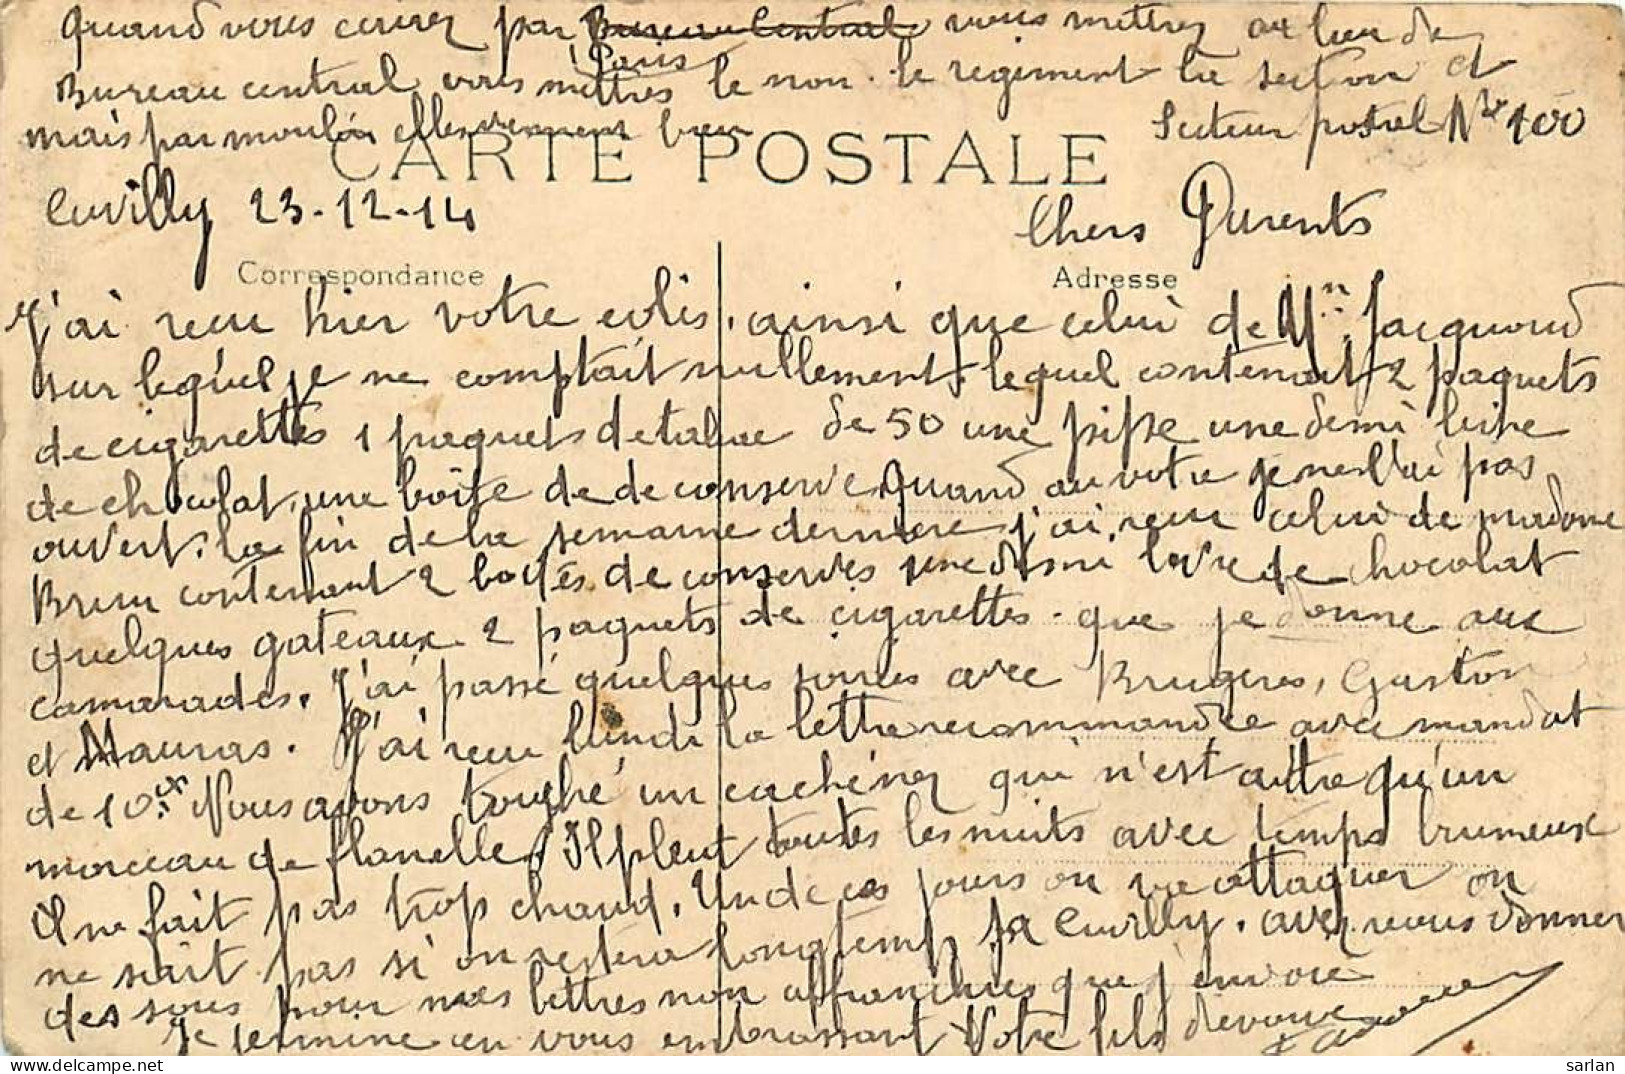 Quand vous ecrirez par Bureau Central vous mettrez au lieu de
Paris
Bureau central vous mettres le non. le regiment la section et
mais par moulin elles viennent bien Secteur postal Nro 100
CARTE POSTALE
Cuvilly 23-12-14 Chers Parents
Correspondance Adresse
J'ai recu hier votre colis. ainsi que celui de Mn Jacquond
sur lequel je ne comptait nullement. lequel contenait 2 paquets
de cigarettes 1 paquets de tabac de 50 une pippe une demi livre
de chocolat. une boite de de conserve Quand au votre je ne l'ai pas
ouvert. la fin de la semaine derniere j'ai recu celui de madame
Brun contenant 2 boites de conserves une demi livre de chocolat
quelques gateaux 2 paquets de cigarettes. que je donne aux
camarades. J'ai passé quelques soirées avec Brugeres, Gaston
et Mauras. J'ai recu lundi la lettre recommandée avec mandat
de 10 Nous avons touché un cachénez qui n'est autre qu'un
morceau de flanelle. Il pleut toutes les nuits avec temps brumeux
Il ne fait pas trop chaud. Un de ces jours on va attaquer on
ne sait pas si on restera longtemp a Cuvilly. avez vous donner
des sous pour mes lettres non affranchies que j'envoie
Je termine en vous embrassant Votre fils devoué
sarlan